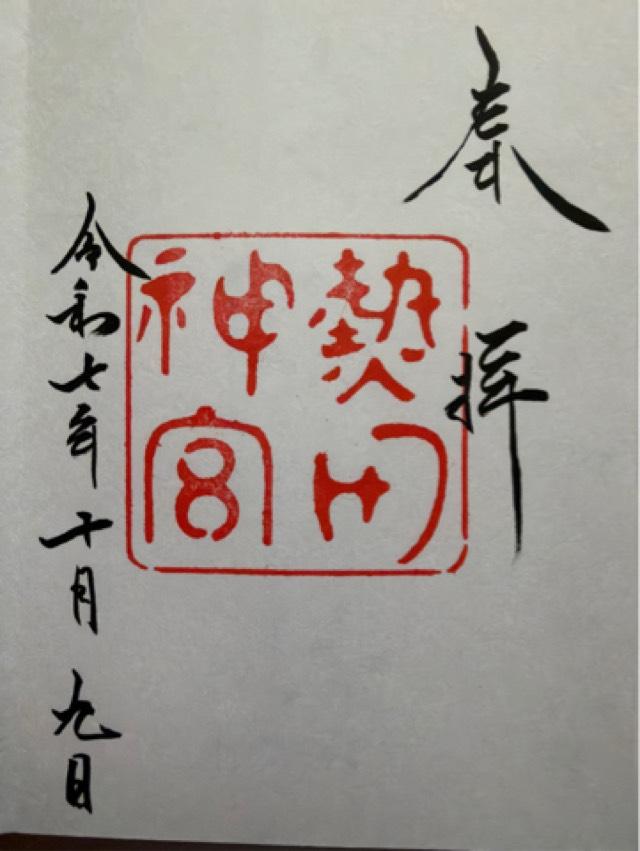 奉拝
熱田
神宮
令和七年十月九日